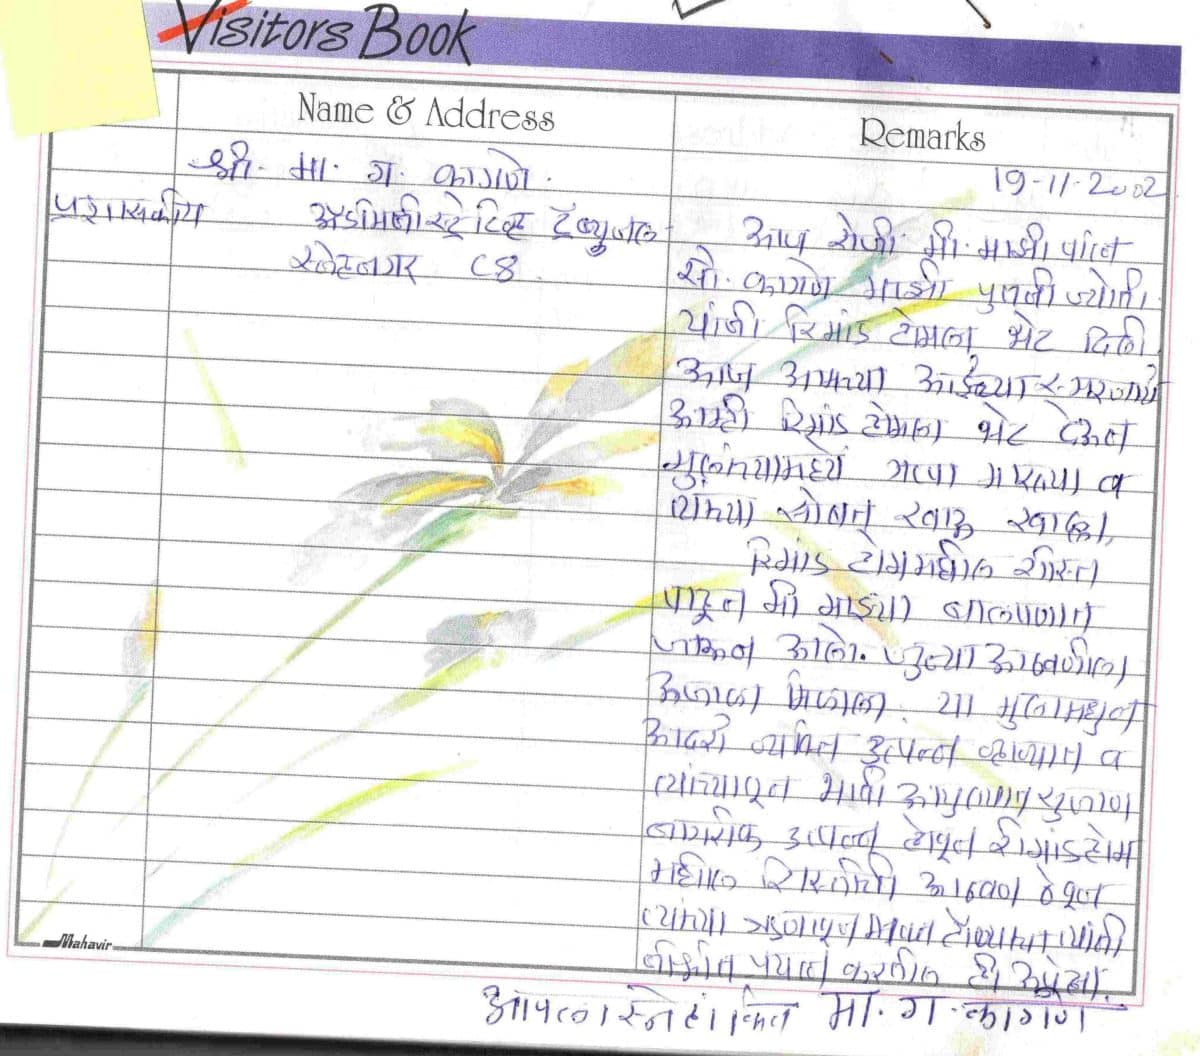 Visitors Book
Name & Address
Remarks
श्री. मा. ग. कागणे.
19-11-2002
प्रशासकीय अॅडमिनीस्ट्रेटिव्ह ट्रॅब्युनल
स्नेहनगर C8.
आज रोजी मी. माझी पत्नि
सौ. कागणे माझी पुतनी ज्योती
यांनी रिमांड होमला भेट दिली
आज आमच्या आईच्या स्मरणार्थ
आम्ही रिमांड होमला भेट देऊन
मुलांच्यामध्ये गप्पा मारल्या व
त्यांच्या सोबत खाऊ खाल्ला.
रिमांड होममधील शिस्त
पाहून मी माझ्या बालपणात
आलो. जुन्या आठवणींना
ऊजाळा मिळाला. या मुलामधुन
आदर्श व्यक्ति उत्पन्न व्हाव्यात व
त्यांच्यातून भावी सुजाण
नागरीक उत्पन्न होवून रिमांड होम
मधील शिस्तीची आठवण ठेवून
त्यांच्या
प्रयत्न करतील ही अपेक्षा.
आपला स्नेहांकित मा. ग. कागणे
Mahavir